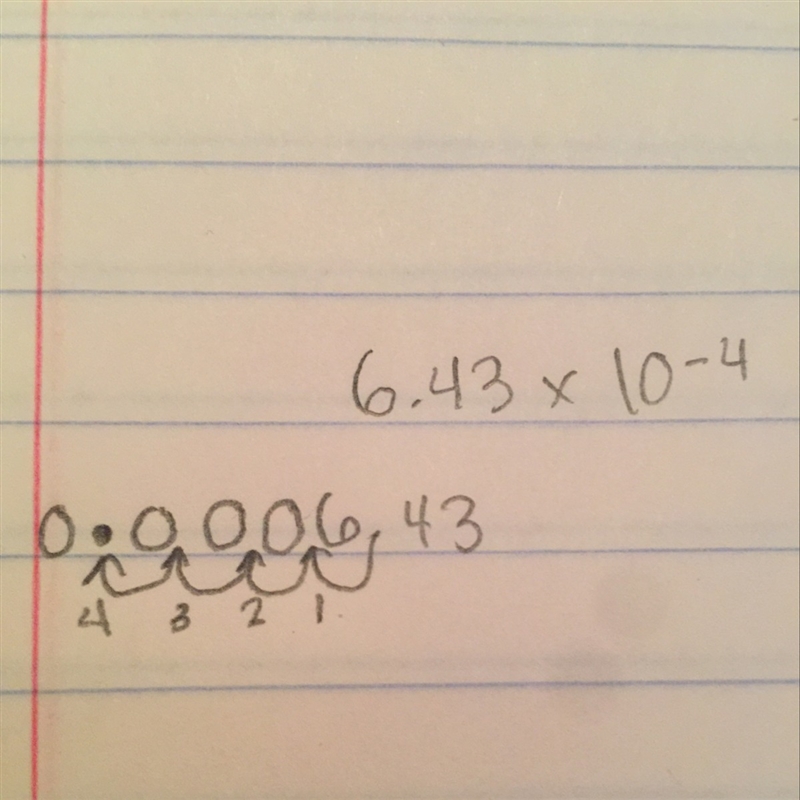 6.43 x 10-4
0.0006.43
4 3 2 1